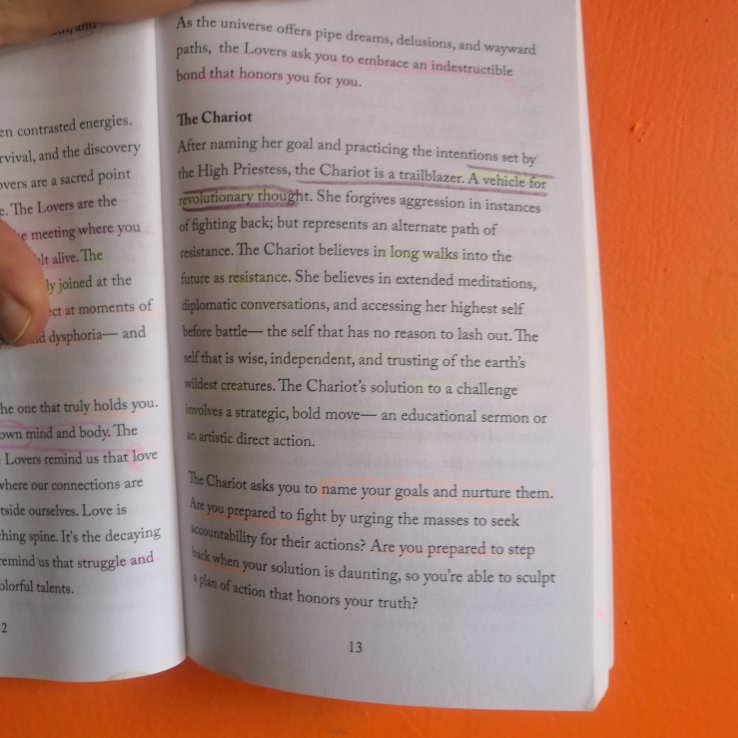 and
en contrasted energies.
rvival, and the discovery
overs are a sacred point
e. The Lovers are the
meeting where you
elt alive. The
ly joined at the
ect at moments of
d dysphoria— and
he one that truly holds you.
own mind and body. The
Lovers remind us that love
where our connections are
tside ourselves. Love is
hing spine. It's the decaying
remind us that struggle and
olorful talents.
2
As the universe offers pipe dreams, delusions, and wayward
paths, the Lovers ask you to embrace an indestructible
bond that honors you for you.
The Chariot
After naming her goal and practicing the intentions set by
the High Priestess, the Chariot is a trailblazer. A vehicle for
revolutionary thought. She forgives aggression in instances
of fighting back; but represents an alternate path of
resistance. The Chariot believes in long walks into the
future as resistance. She believes in extended meditations,
diplomatic conversations, and accessing her highest self
before battle— the self that has no reason to lash out. The
self that is wise, independent, and trusting of the earth's
wildest creatures. The Chariot's solution to a challenge
involves a strategic, bold move— an educational sermon or
an artistic direct action.
The Chariot asks you to name your goals and nurture them.
Are you prepared to fight by urging the masses to seek
accountability for their actions? Are you prepared to step
back when your solution is daunting, so you're able to sculpt
a plan of action that honors your truth?
13